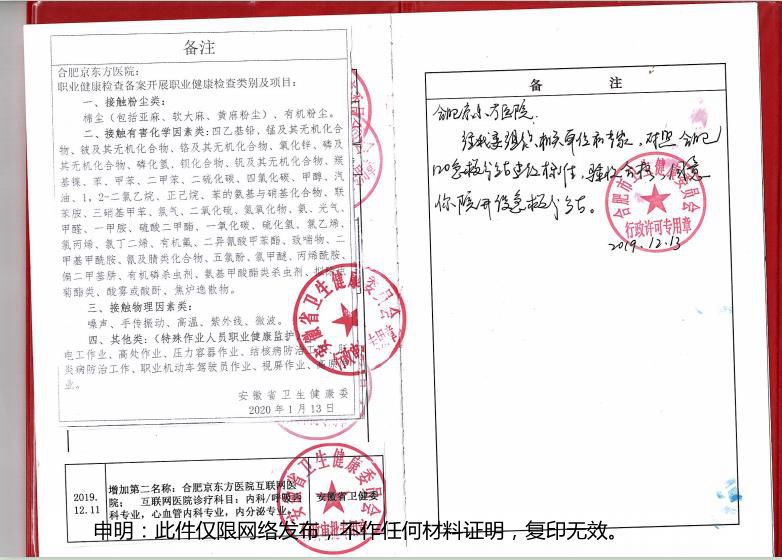 备注
合肥京东方医院:
职业健康检查备案开展职业健康检查类别及项目:
一、接触粉尘类:
棉尘(包括亚麻、软大麻、黄麻粉尘)、有机粉尘。
二、接触有害化学因素类:四乙基铅、锰及其无机化合
物、铍及其无机化合物、铬及其无机化合物、氧化锌、磷及
其无机化合物、磷化氢、钡化合物、钒及其无机化合物、羰
基镍、苯、甲苯、二甲苯、二硫化碳、四氯化碳、甲醇、汽
油、1,2-二氯乙烷、正己烷、苯的氨基与硝基化合物、联
苯胺、三硝基甲苯、氯气、二氧化硫、氮氧化物、氨、光气、
甲醛、一甲胺、硫酸二甲酯、一氧化碳、硫化氢、氯乙烯、
氯丙烯、氯丁二烯、有机氟、二异氰酸甲苯酯、致喘物、二
甲基甲酰胺、氰及腈类化合物、五氯酚、氯甲醚、丙烯酰胺、
偏二甲基肼、有机磷杀虫剂、氨基甲酸酯类杀虫剂、拟除虫
菊酯类、酸雾或酸酐、焦炉逸散物。
三、接触物理因素类:
噪声、手传振动、高温、紫外线、微波。
四、其他类:(特殊作业人员职业健康监护)
电工作业、高处作业、压力容器作业、结核病防治工作、肝
炎病防治工作、职业机动车驾驶员作业、视屏作业、高原
业。
安徽省卫生健康委
2020年1月13日
安徽省卫生健康委员会
2019.
12.11
增加第二名称:合肥京东方医院互联网医
院; 互联网医院诊疗科目:内科/呼吸内
科专业,心血管内科专业,内分泌专业。
安徽省卫健委
安徽省卫生健康委员会
备 注
合肥京东方医院
经我委组织相关单位和专家,对照合肥
120急救分站建设标准,验收合格,同意
你院开设急救分站。
合肥市卫生健康委员会
行政许可专用章
2019.12.13
申明:此件仅限网络发布,不作任何材料证明,复印无效。